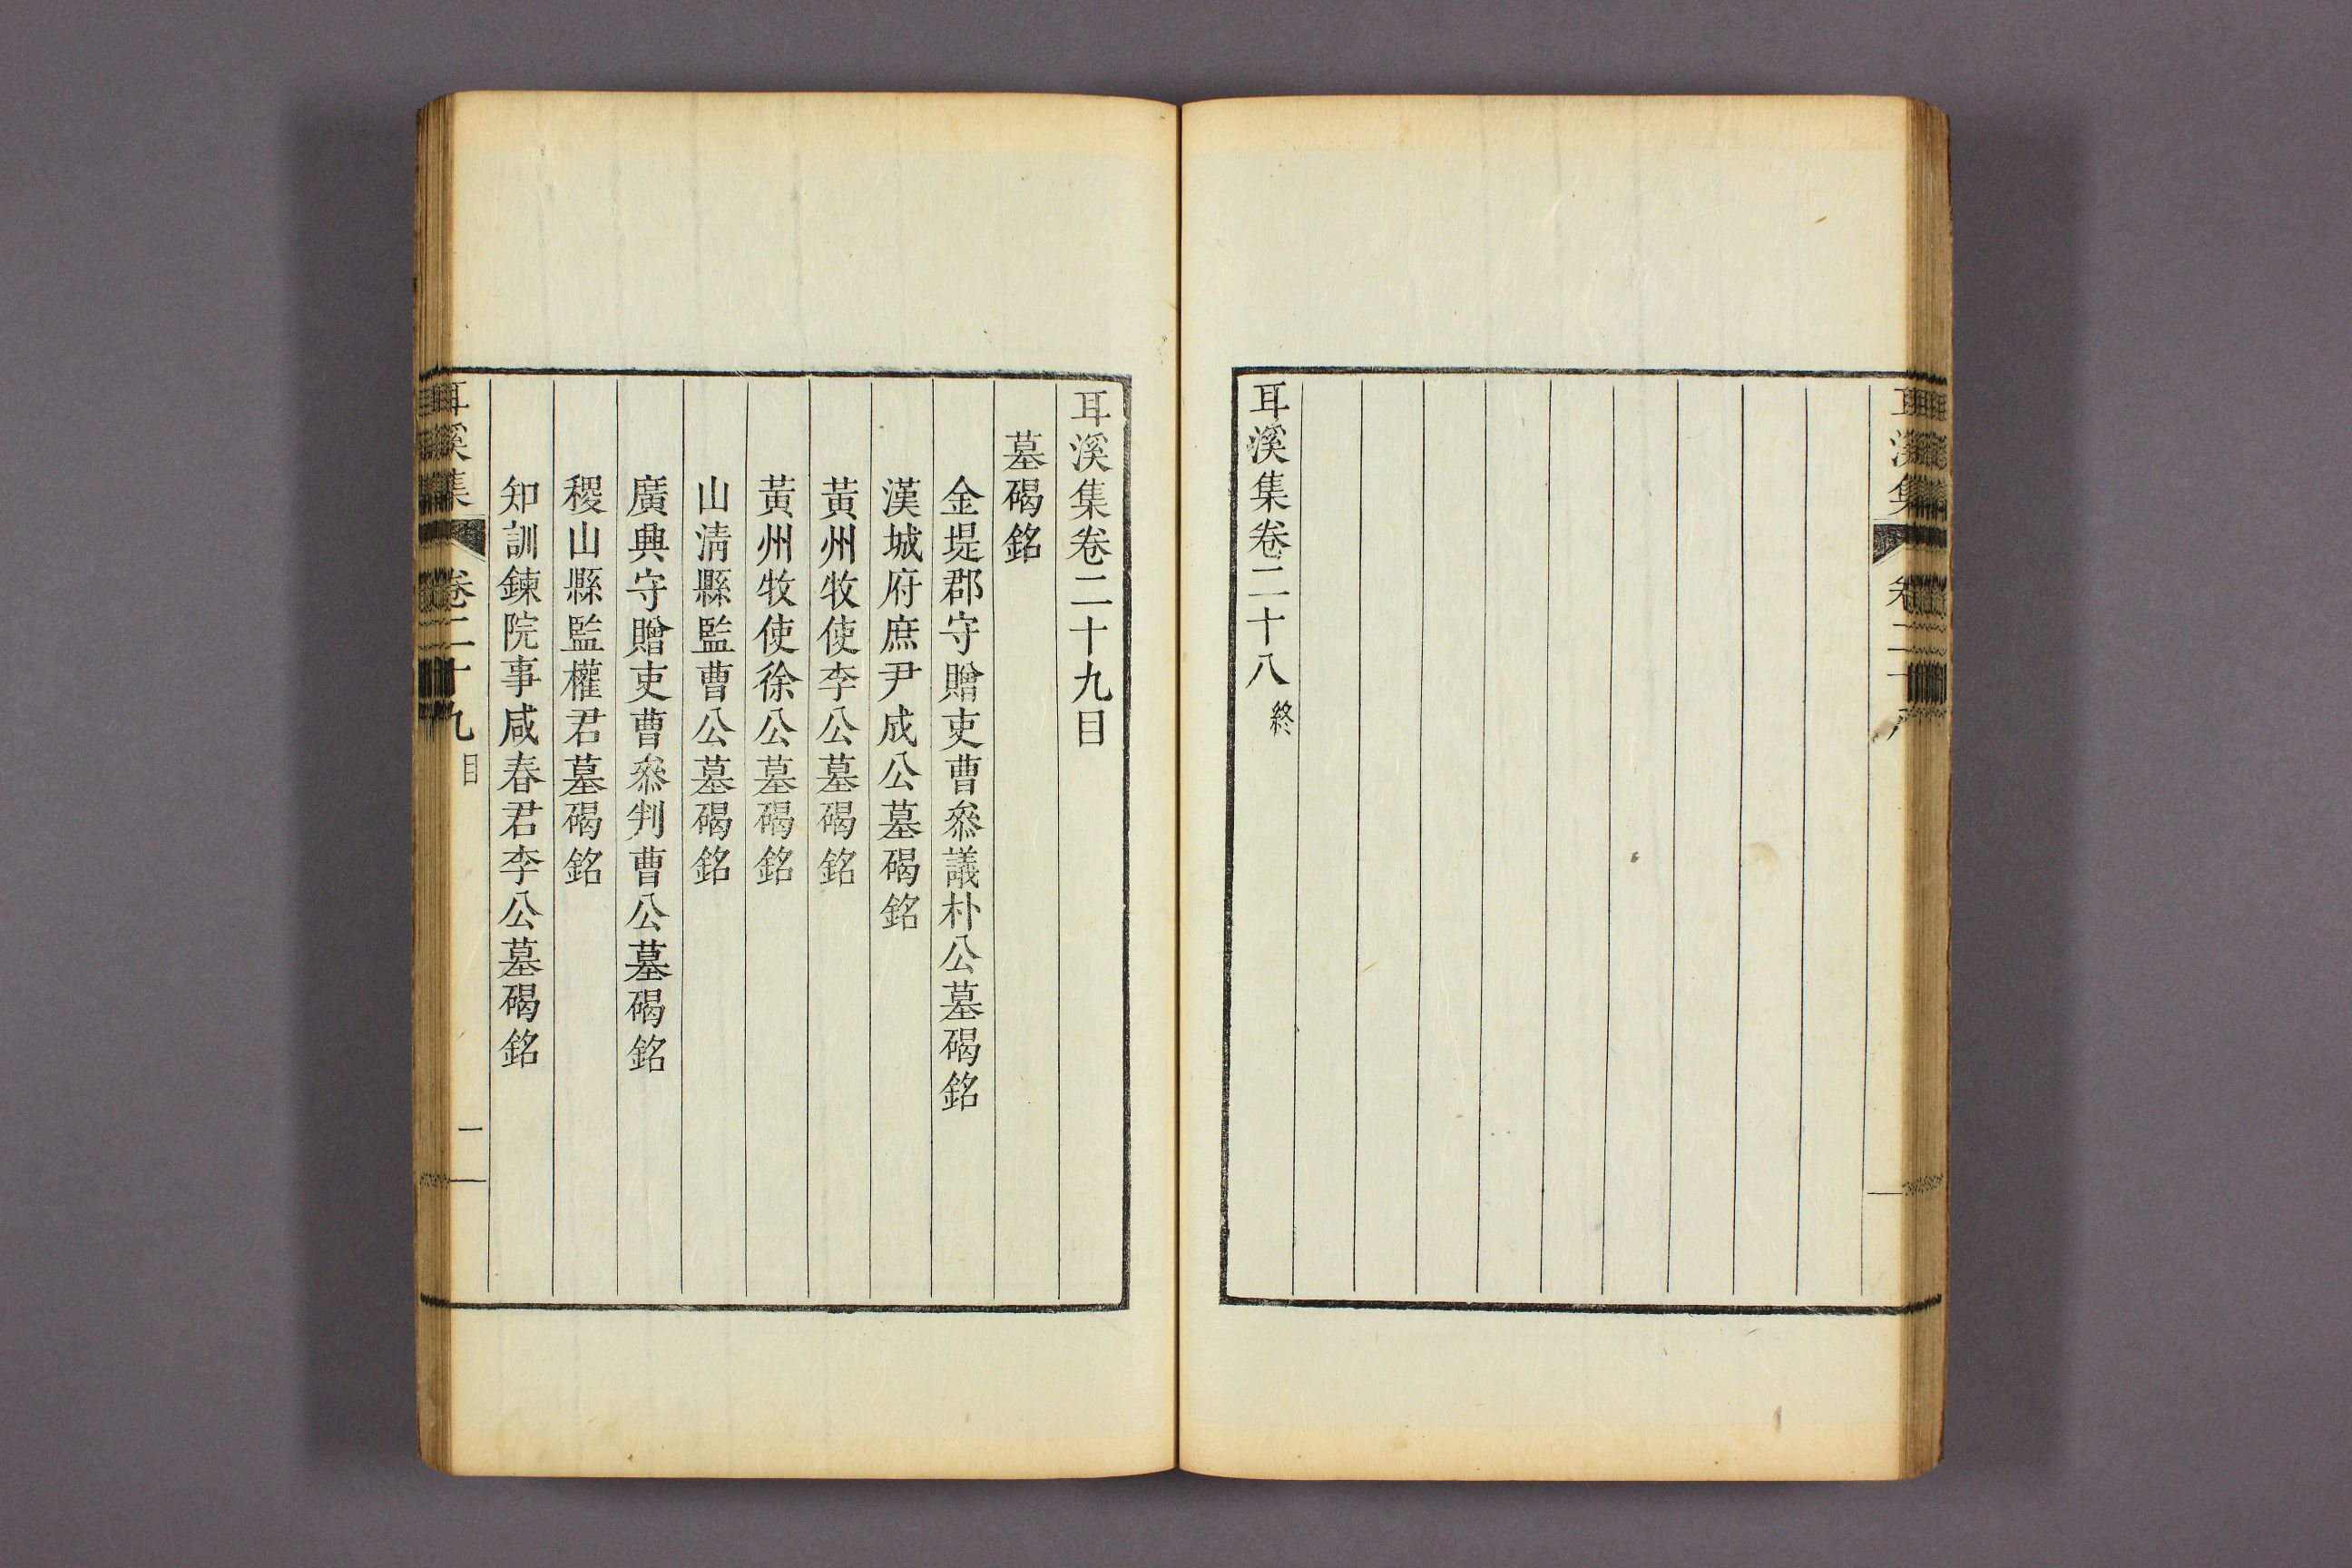 耳溪集卷二十八 終
耳溪集卷二十九目
墓碣銘
金堤郡守贈吏曹叅議朴公墓碣銘
漢城府庶尹成公墓碣銘
黃州牧使李公墓碣銘
黃州牧使徐公墓碣銘
山淸縣監曹公墓碣銘
廣興守贈吏曹叅判曹公墓碣銘
稷山縣監權君墓碣銘
知訓鍊院事咸春君李公墓碣銘
耳溪集 卷二十九 目 一